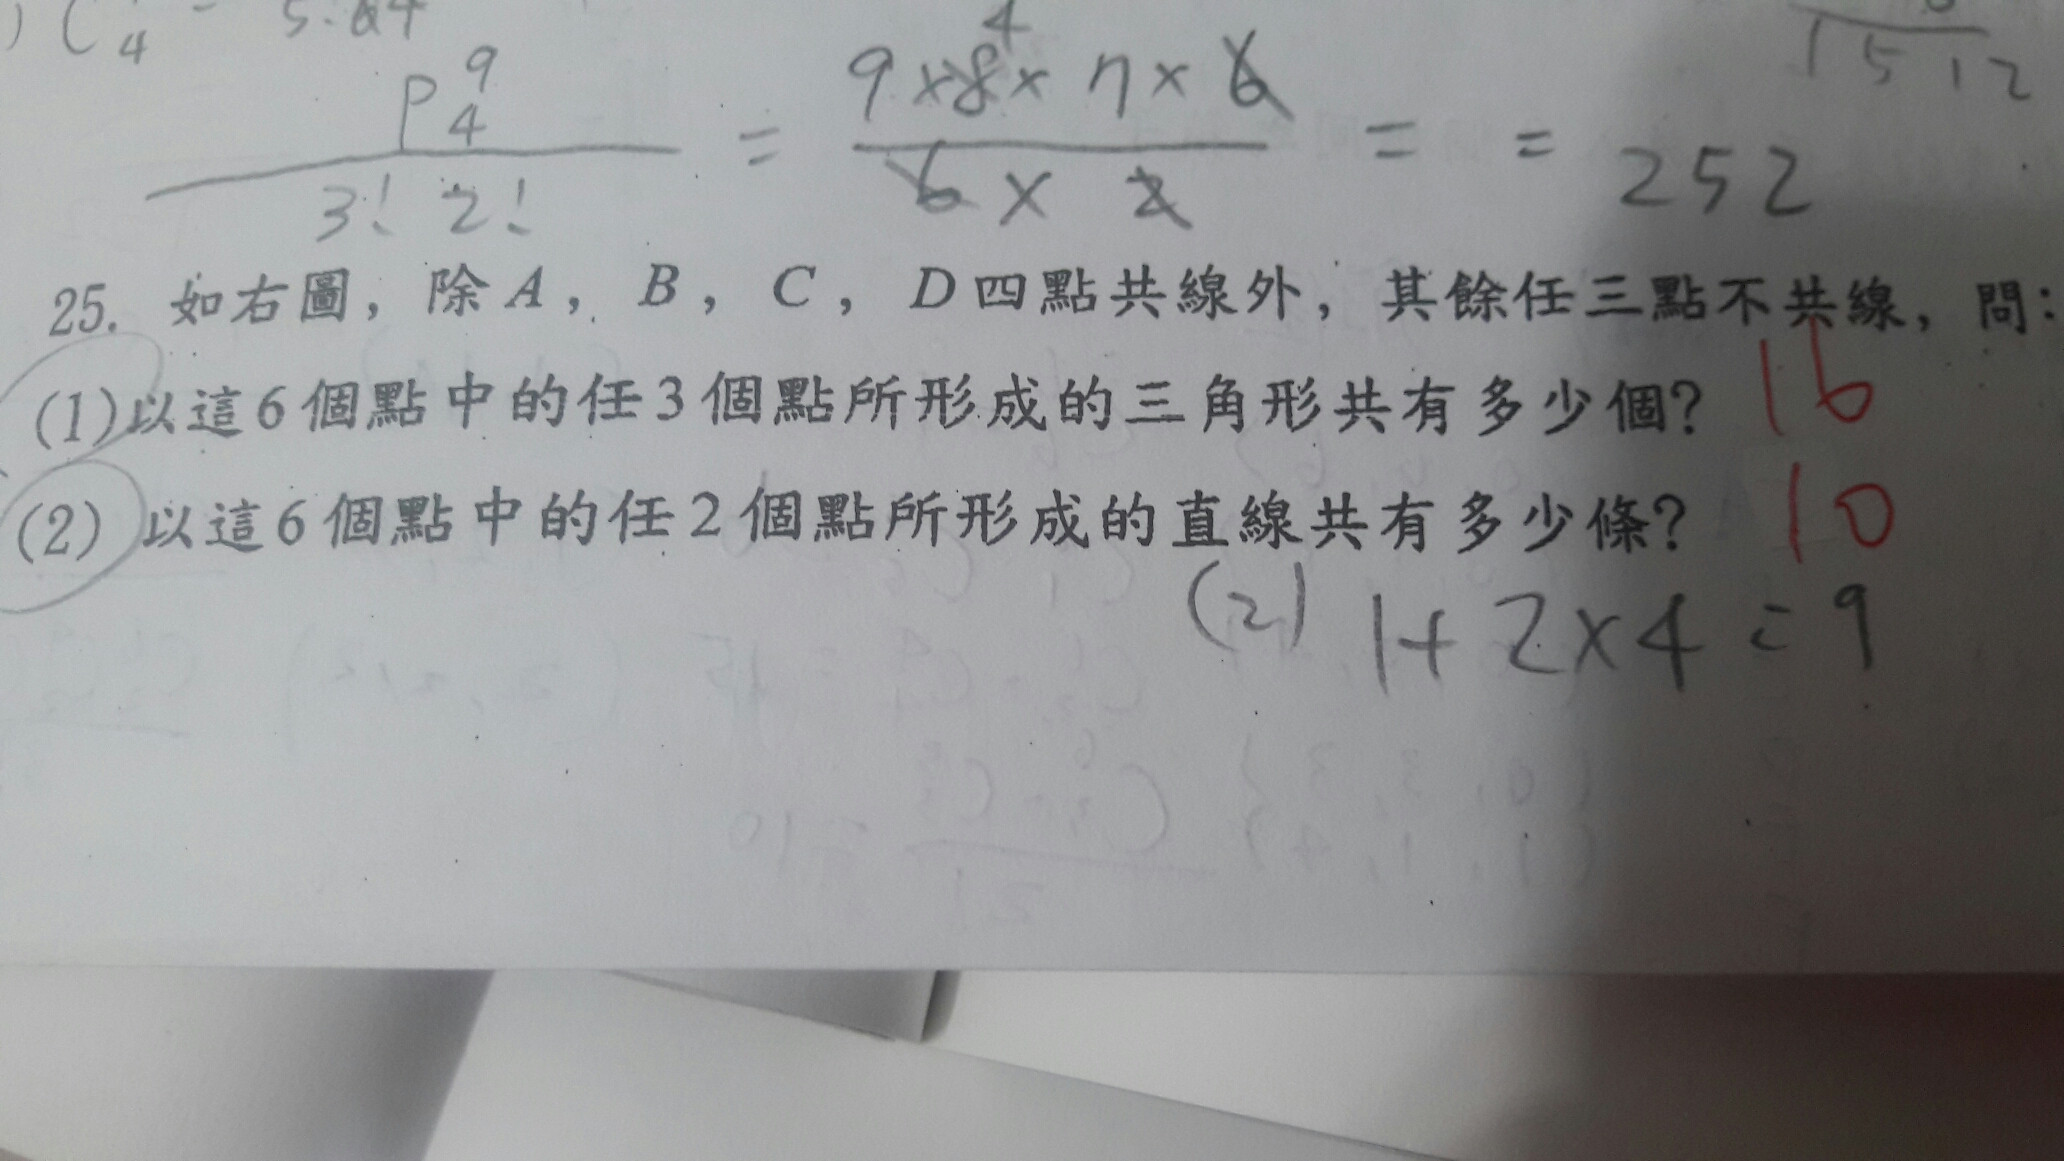 4
P 9 4 / 3! 2! = 9×8×7×6 / 6 × 2 = = 252
1512
25. 如右圖，除A，B，C，D四點共線外，其餘任三點不共線，問：
(1)以這6個點中的任3個點所形成的三角形共有多少個? 16
(2) 以這6個點中的任2個點所形成的直線共有多少條? 10
(2) 1+2×4=9